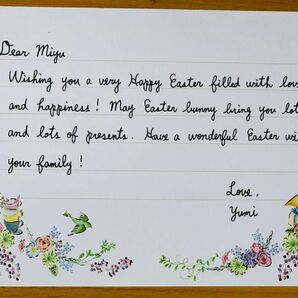 Dear Miyu
Wishing you a very Happy Easter filled with lov
and happiness! May Easter bunny bring you lot
and lots of presents. Have a wonderful Easter wi
your family!
Love,
Yumi